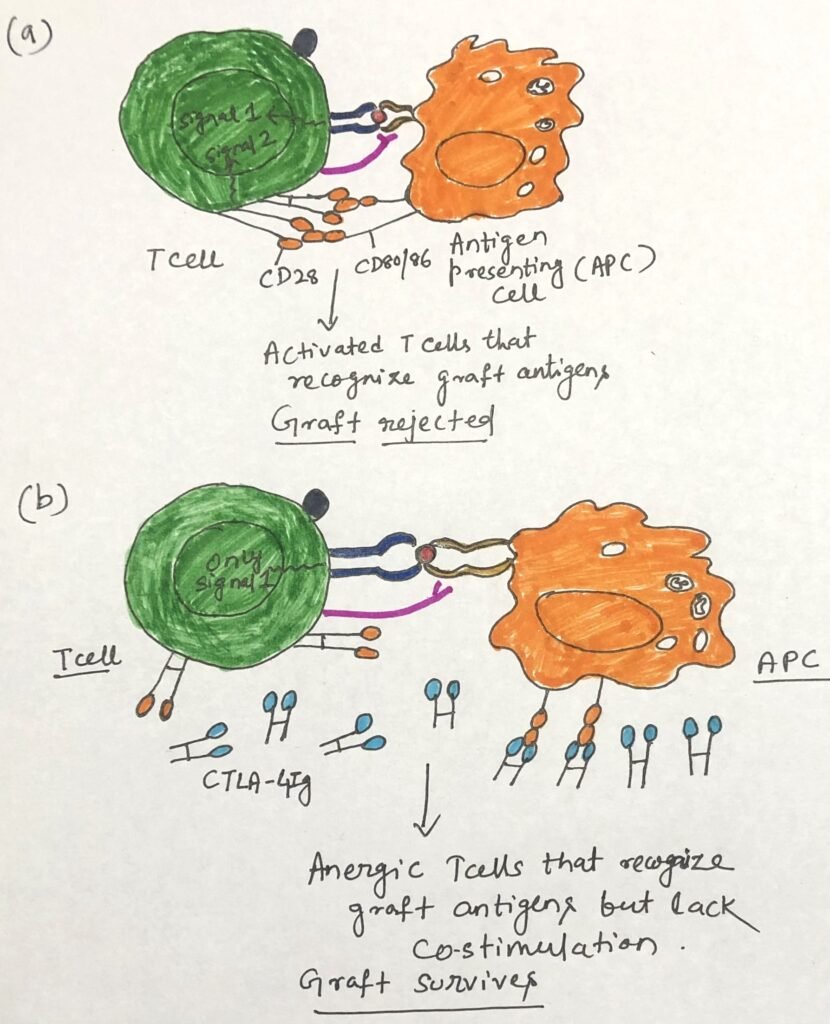 (a)
signal 1
signal 2
T cell
CD28
CD80/86
Antigen
presenting (APC)
cell
Activated T cells that
recognize graft antigens
Graft rejected
(b)
only
signal 1
T cell
APC
CTLA-4Ig
Anergic T cells that recognize
graft antigens but lack
co-stimulation.
Graft survives